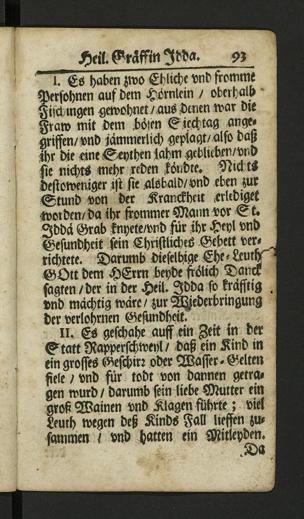 Heil. Gräffin Jdda. 93
I. Es haben zwo Ehliche vnd fromme
Persohnen auf dem Hörnlein / oberhalb
Fischingen gewohnet / aus denen war die
Fraw mit dem bösen Siechtag ange-
griffen / vnd jämmerlich geplagt / also daß
ihr die eine Seythen lahm geblieben / vnd
sie nichts mehr reden köndte. Nichts
destoweniger ist sie alsbald / vnd eben zur
Stund von der Kranckheit erlediget
worden / da ihr frommer Mann vor St.
Jddå Grab knyete / vnd für ihr Heyl vnd
Gesundheit sein Christliches Gebett ver-
richtete. Darumb dieselbige Ehe-Leuth
GOtt dem HErrn beyde frölich Danck
sagten / der in der Heil. Jdda so kräfftig
vnd mächtig wäre / zur Wiederbringung
der verlohrnen Gesundheit.
II. Es geschahe auff ein Zeit in der
Statt Rapperschweyl / daß ein Kind in
ein grosses Geschirr oder Wasser-Gelten
fiele / vnd für todt von dannen getra-
gen wurd / darumb sein liebe Mutter ein
groß Wainen vnd Klagen führte ; viel
Leuth wegen deß Kinds Fall lieffen zu-
sammen / vnd hatten ein Mitleyden.
Da